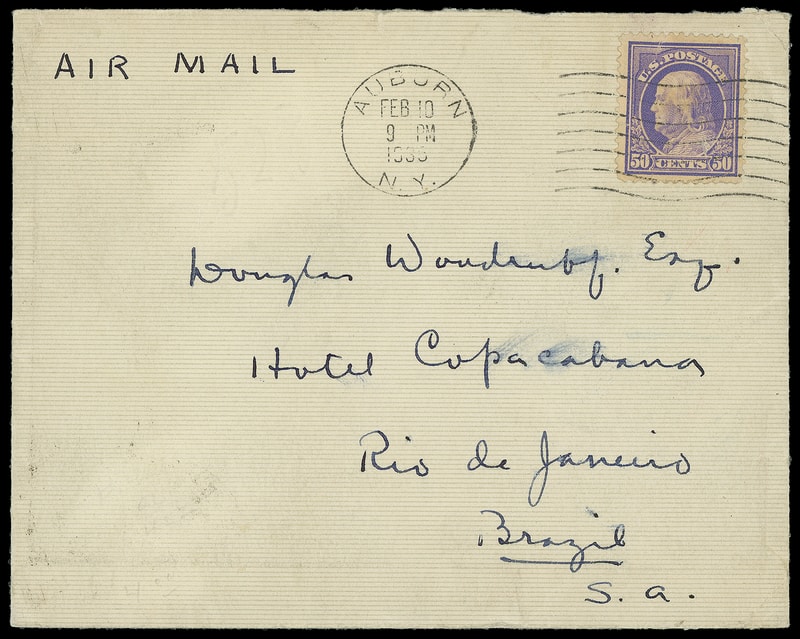 AIR MAIL
AUBURN
FEB 10
9 PM
N.Y.
U.S. POSTAGE
50 CENTS 50
Douglas Woodruff. Esq.
Hotel Copacabana
Rio de Janeiro
Brazil
S. a.